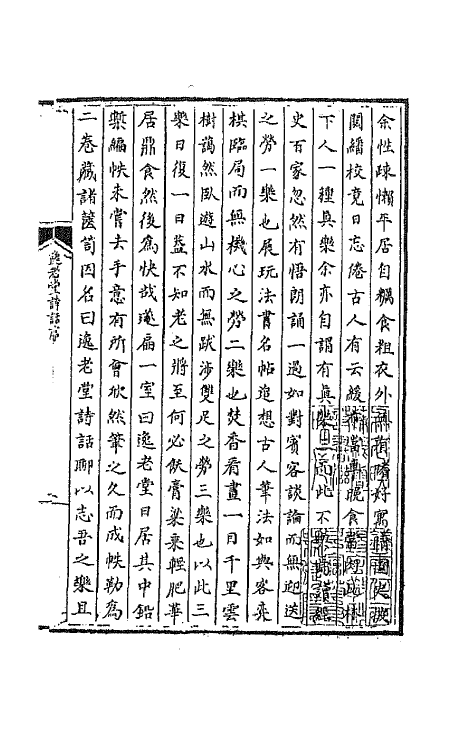 余性疎懶平居自糲食粗衣外無有嗜好寓情圖史披
閱繙校竟日忘倦古人有云緩步當車晚食當肉政林
下人一種真樂余亦自謂有真樂三而此不與焉讀經
史百家忽然有悟朗誦一過如對賓客談論而無迎送
之勞一樂也展玩法書名帖追想古人筆法如與客奕
棋臨局而無機心之勞二樂也焚香看畫一日千里雲
樹藹然臥遊山水而無跋涉雙足之勞三樂也以此三
樂日復一日蓋不知老之將至何必飫膏粱乘輕肥華
居鼎食然後爲快哉遂扁一室曰逸老堂日居其中鉛
槧編帙未嘗去手意有所會欣然筆之久而成帙勒爲
二卷藏諸篋笥因名曰逸老堂詩話聊以志吾之樂且
逸老堂詩話序
一